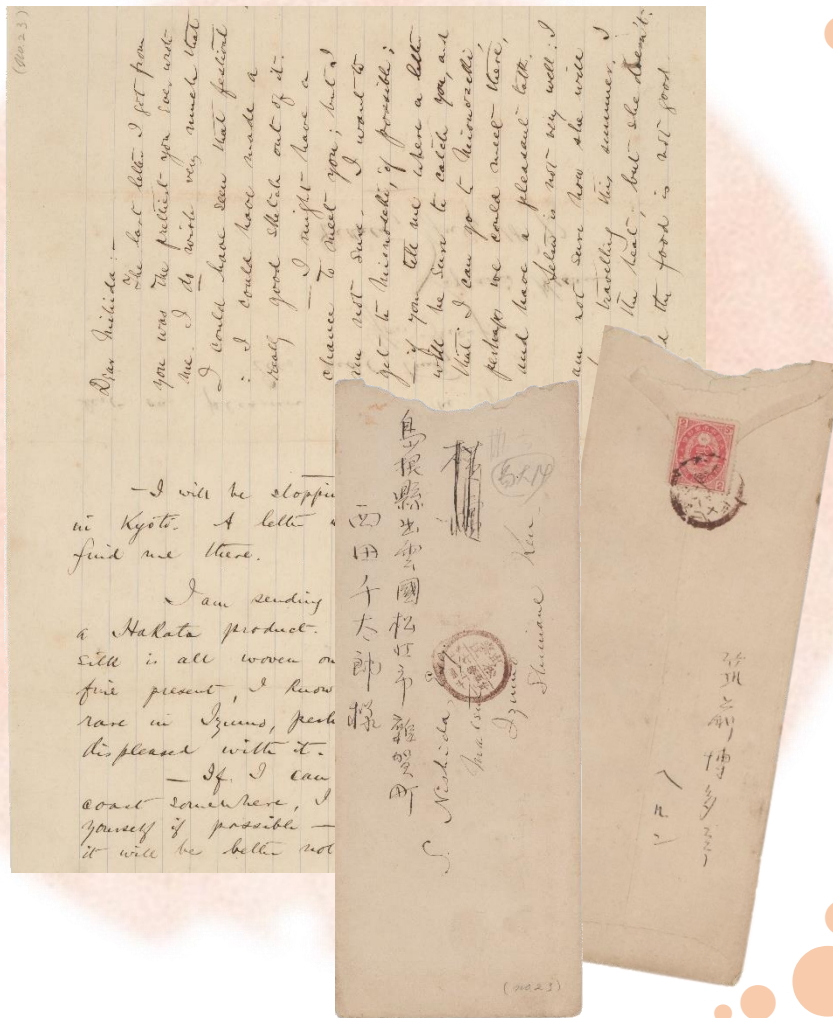 (no.23)
Dear Nishida:—
The last letter I got from
you was the prettiest you ever wrote
me. I do wish very much that
I could have seen that festival
: I could have made a
really good sketch out of it.
— I might have a
chance to meet you; but I
am not sure. I want to
get to Mionoseki, if possible;
— if you tell me where a letter
will be sure to catch you, and
that I can go to Mionoseki,
perhaps we could meet there,
and have a pleasant talk.
Setsu is not very well: I
am not sure how she will
travelling this summer. I
the heat, but she doesn't.
the food is not good
— I will be stoppi
in Kyōto. A letter
find me there.
I am sending
a Hakata product.
silk is all woven on
fine present, I know
rare in Izumo, perh
displeased with it.
— If I can
coast somewhere, I
yourself if possible —
it will be better not
島根縣出雲國松江市雜賀町
西田千太郎様
S. Nishida,
Matsu
Izumo
Shimane Ken.
(no.23)
筑前博多ニテ
八雲